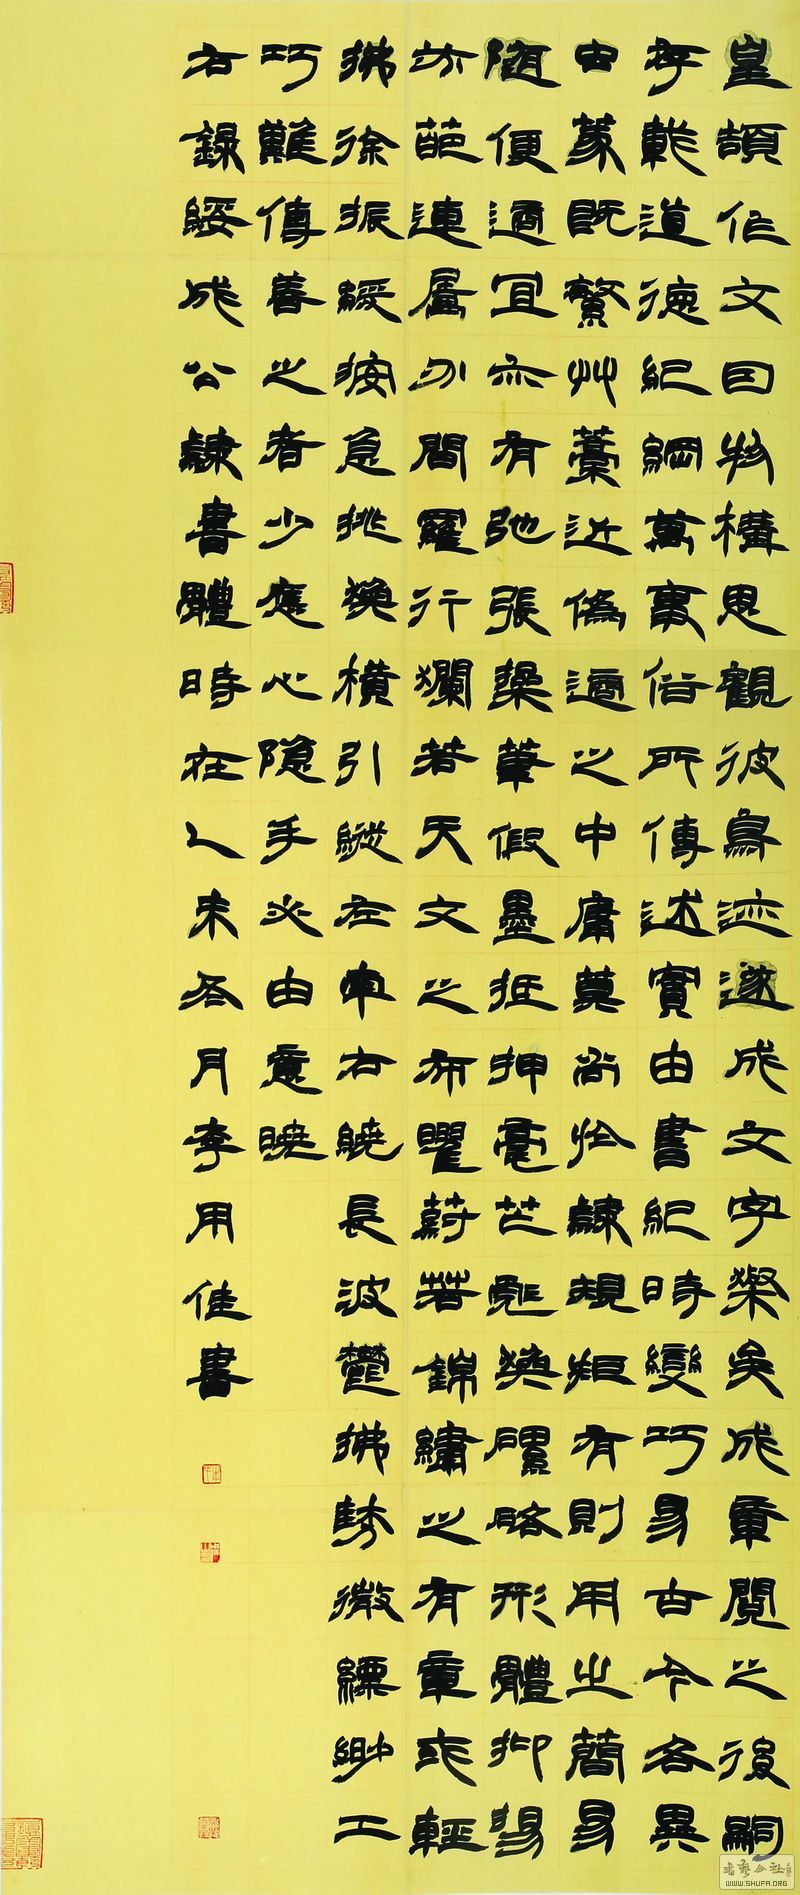 皇頡作文因物構思觀彼鳥迹遂成文字粲矣成章閱之後嗣
存載道德紀綱萬事俗所傳述實由書紀時變巧易古今各異
虫篆既繁艸藁近偽適之中庸莫尚於隸規矩有則用之簡易
隨便適宜亦有弛張操筆假墨抵押毫芒彪焕磥硌形體抑揚
芬葩連屬分間羅行爛若天文之布曜蔚若錦繡之有章或輕
拂徐振緩按急挑挽橫引縱左牽右繞長波鬱拂微勢縹緲工
巧難傳善之者少應心隱手必由意曉
右錄綏成公隸書體時在乙未冬月李用佳書
WWW.SHUFA.ORG